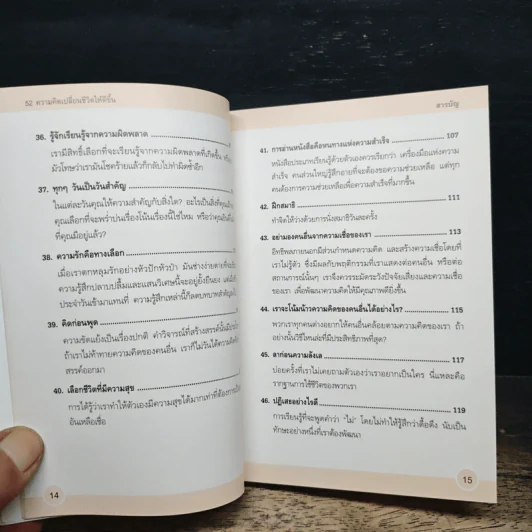 52 ความคิดเปลี่ยนชีวิตให้ดีขึ้น
36. รู้จักเรียนรู้จากความผิดพลาด
เรามีสิทธิ์เลือกที่จะเรียนรู้จากความผิดพลาดที่เกิดขึ้น หรือ
มัวโทษว่าเรามันโชคร้ายแล้วก็กลับไปทำผิดซ้ำอีก
37. ทุกๆ วันเป็นวันสำคัญ
ในแต่ละวันคุณให้ความสำคัญกับสิ่งใด? อะไรเป็นสิ่งที่
คุณเลือกที่จะพร่ำบ่นเรื่องโน้นเรื่องนี้ใช่ไหม หรือว่าคุณยินดี
ที่คุณมีอยู่แล้ว?
38. ความรักคือทางเลือก
เมื่อเราตกหลุมรักอย่างหัวปักหัวปำ มันช่างง่ายดายที่
ความรู้สึกปลาบปลื้มและแสนวิเศษนี้จะอยู่ยั้งยืนยง
ประจำวันเข้ามาแทนที่ ความรู้สึกเหล่านี้ก็ลดบทบาทสำคัญ
39. คิดก่อนพูด
ความขัดแย้งเป็นเรื่องปกติ คำวิจารณ์ที่สร้างสรรค์นั้น
ถ้าเราไม่ท้าทายความคิดของคนอื่น เราก็ไม่วันได้ความคิด
สรรค์ออกมา
40. เลือกชีวิตที่มีความสุข
การได้รู้ว่าเราทำให้ตัวเองมีความสุขได้มากเท่าที่ต้องการ
อันเหลือเชื่อ
14
สารบัญ
41. การอ่านหนังสือคือหนทางแห่งความสำเร็จ 107
หนังสือประเภทเรียนรู้ด้วยตัวเองควรเรียกว่า เครื่องมือแห่งความ
สำเร็จ คนส่วนใหญ่รู้สึกอายที่จะต้องขอความช่วยเหลือ แต่ทุก
คนต้องการความช่วยเหลือเพื่อความสำเร็จที่มากขึ้น
42. ฝึกสมาธิ 111
ทำจิตให้ว่างด้วยการนั่งสมาธิวันละครั้ง
43. อย่ามองคนอื่นจากความเชื่อของเรา 113
อิทธิพลภายนอกมีส่วนกำหนดความคิด และสร้างความเชื่อโดยที่
เราไม่รู้ตัว ซึ่งมีผลกับพฤติกรรมที่เราแสดงต่อคนอื่น หรือต่อ
สถานการณ์นั้นๆ เราจึงควรระมัดระวังปัจจัยเสี่ยงและความเชื่อ
ของเรา เพื่อพัฒนาความคิดให้มีคุณภาพดียิ่งขึ้น
44. เราจะโน้มน้าวความคิดของคนอื่นได้อย่างไร? 115
พวกเราทุกคนต่างอยากให้คนอื่นคล้อยตามความคิดของเรา ถ้า
อย่างนั้นวิธีไหนล่ะที่มีประสิทธิภาพที่สุด?
45. ลาก่อนความลังเล 117
บ่อยครั้งที่เราไม่เคยถามตัวเองว่าเราอยากเป็นใคร นี่แหละคือ
รากฐานการใช้ชีวิตของพวกเรา
46. ปฏิเสธอย่างไรดี 119
การเรียนรู้ที่จะพูดคำว่า "ไม่" โดยไม่ทำให้รู้สึกว่าดื้อดึง นับเป็น
ทักษะอย่างหนึ่งที่เราต้องพัฒนา
15